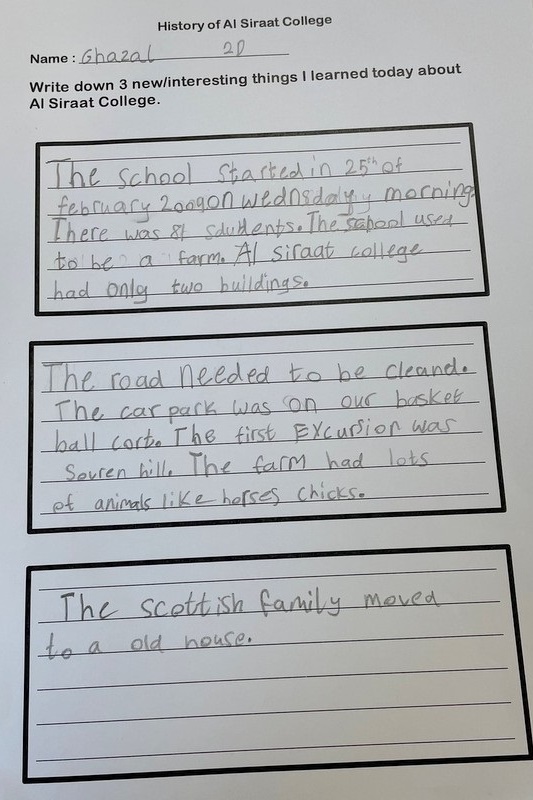 History of Al Siraat College
Name : Ghazal 2D
Write down 3 new/interesting things I learned today about
Al Siraat College.
The school started in 25th of
february 2009 on wednsday morning.
There was 81 sdudents. The school used
to be a farm. Al siraat college
had only two buildings.
The road needed to be cleand.
The car park was on our basket
ball cort. The first Excursion was
Sovren hill. The farm had lots
of animals like horses chicks.
The scottish family moved
to a old house.